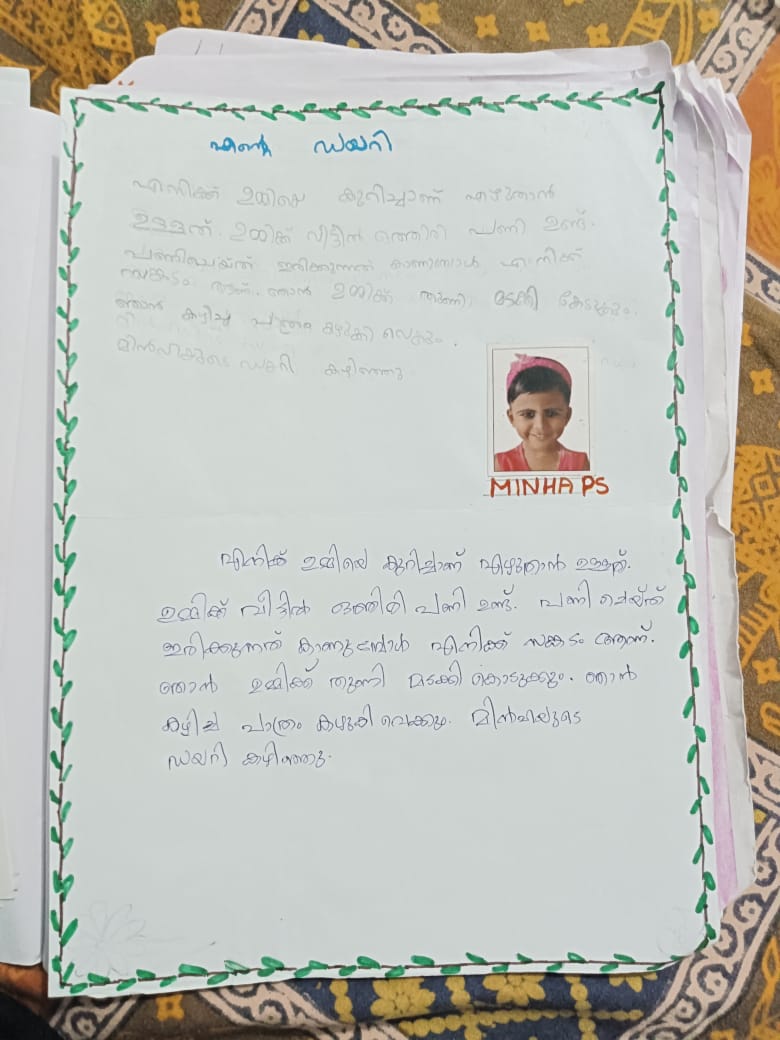 എന്റെ ഡയറി
എനിക്ക് ഉമ്മിയെ കുറിച്ചാണ് എഴുതാൻ
ഉള്ളത്. ഉമ്മിക്ക് വീട്ടിൽ ഒത്തിരി പണി ഉണ്ട്.
പണിചെയ്ത് ഇരിക്കുന്നത് കാണുമ്പോൾ എനിക്ക്
സങ്കടം ആണ്. ഞാൻ ഉമ്മിക്ക് തുണി മടക്കി കേടുക്കും.
ഞാൻ കഴിച്ച പാത്രം കഴുകി വെക്കും.
മിൻഹയുടെ ഡയറി കഴിഞ്ഞു
MINHA PS
എനിക്ക് ഉമ്മിയെ കുറിച്ചാണ് എഴുതാൻ ഉള്ളത്.
ഉമ്മിക്ക് വീട്ടിൽ ഒത്തിരി പണി ഉണ്ട്. പണി ചെയ്ത്
ഇരിക്കുന്നത് കാണുമ്പോൾ എനിക്ക് സങ്കടം ആണ്.
ഞാൻ ഉമ്മിക്ക് തുണി മടക്കി കൊടുക്കും. ഞാൻ
കഴിച്ച പാത്രം കഴുകി വെക്കും. മിൻഹയുടെ
ഡയറി കഴിഞ്ഞു.